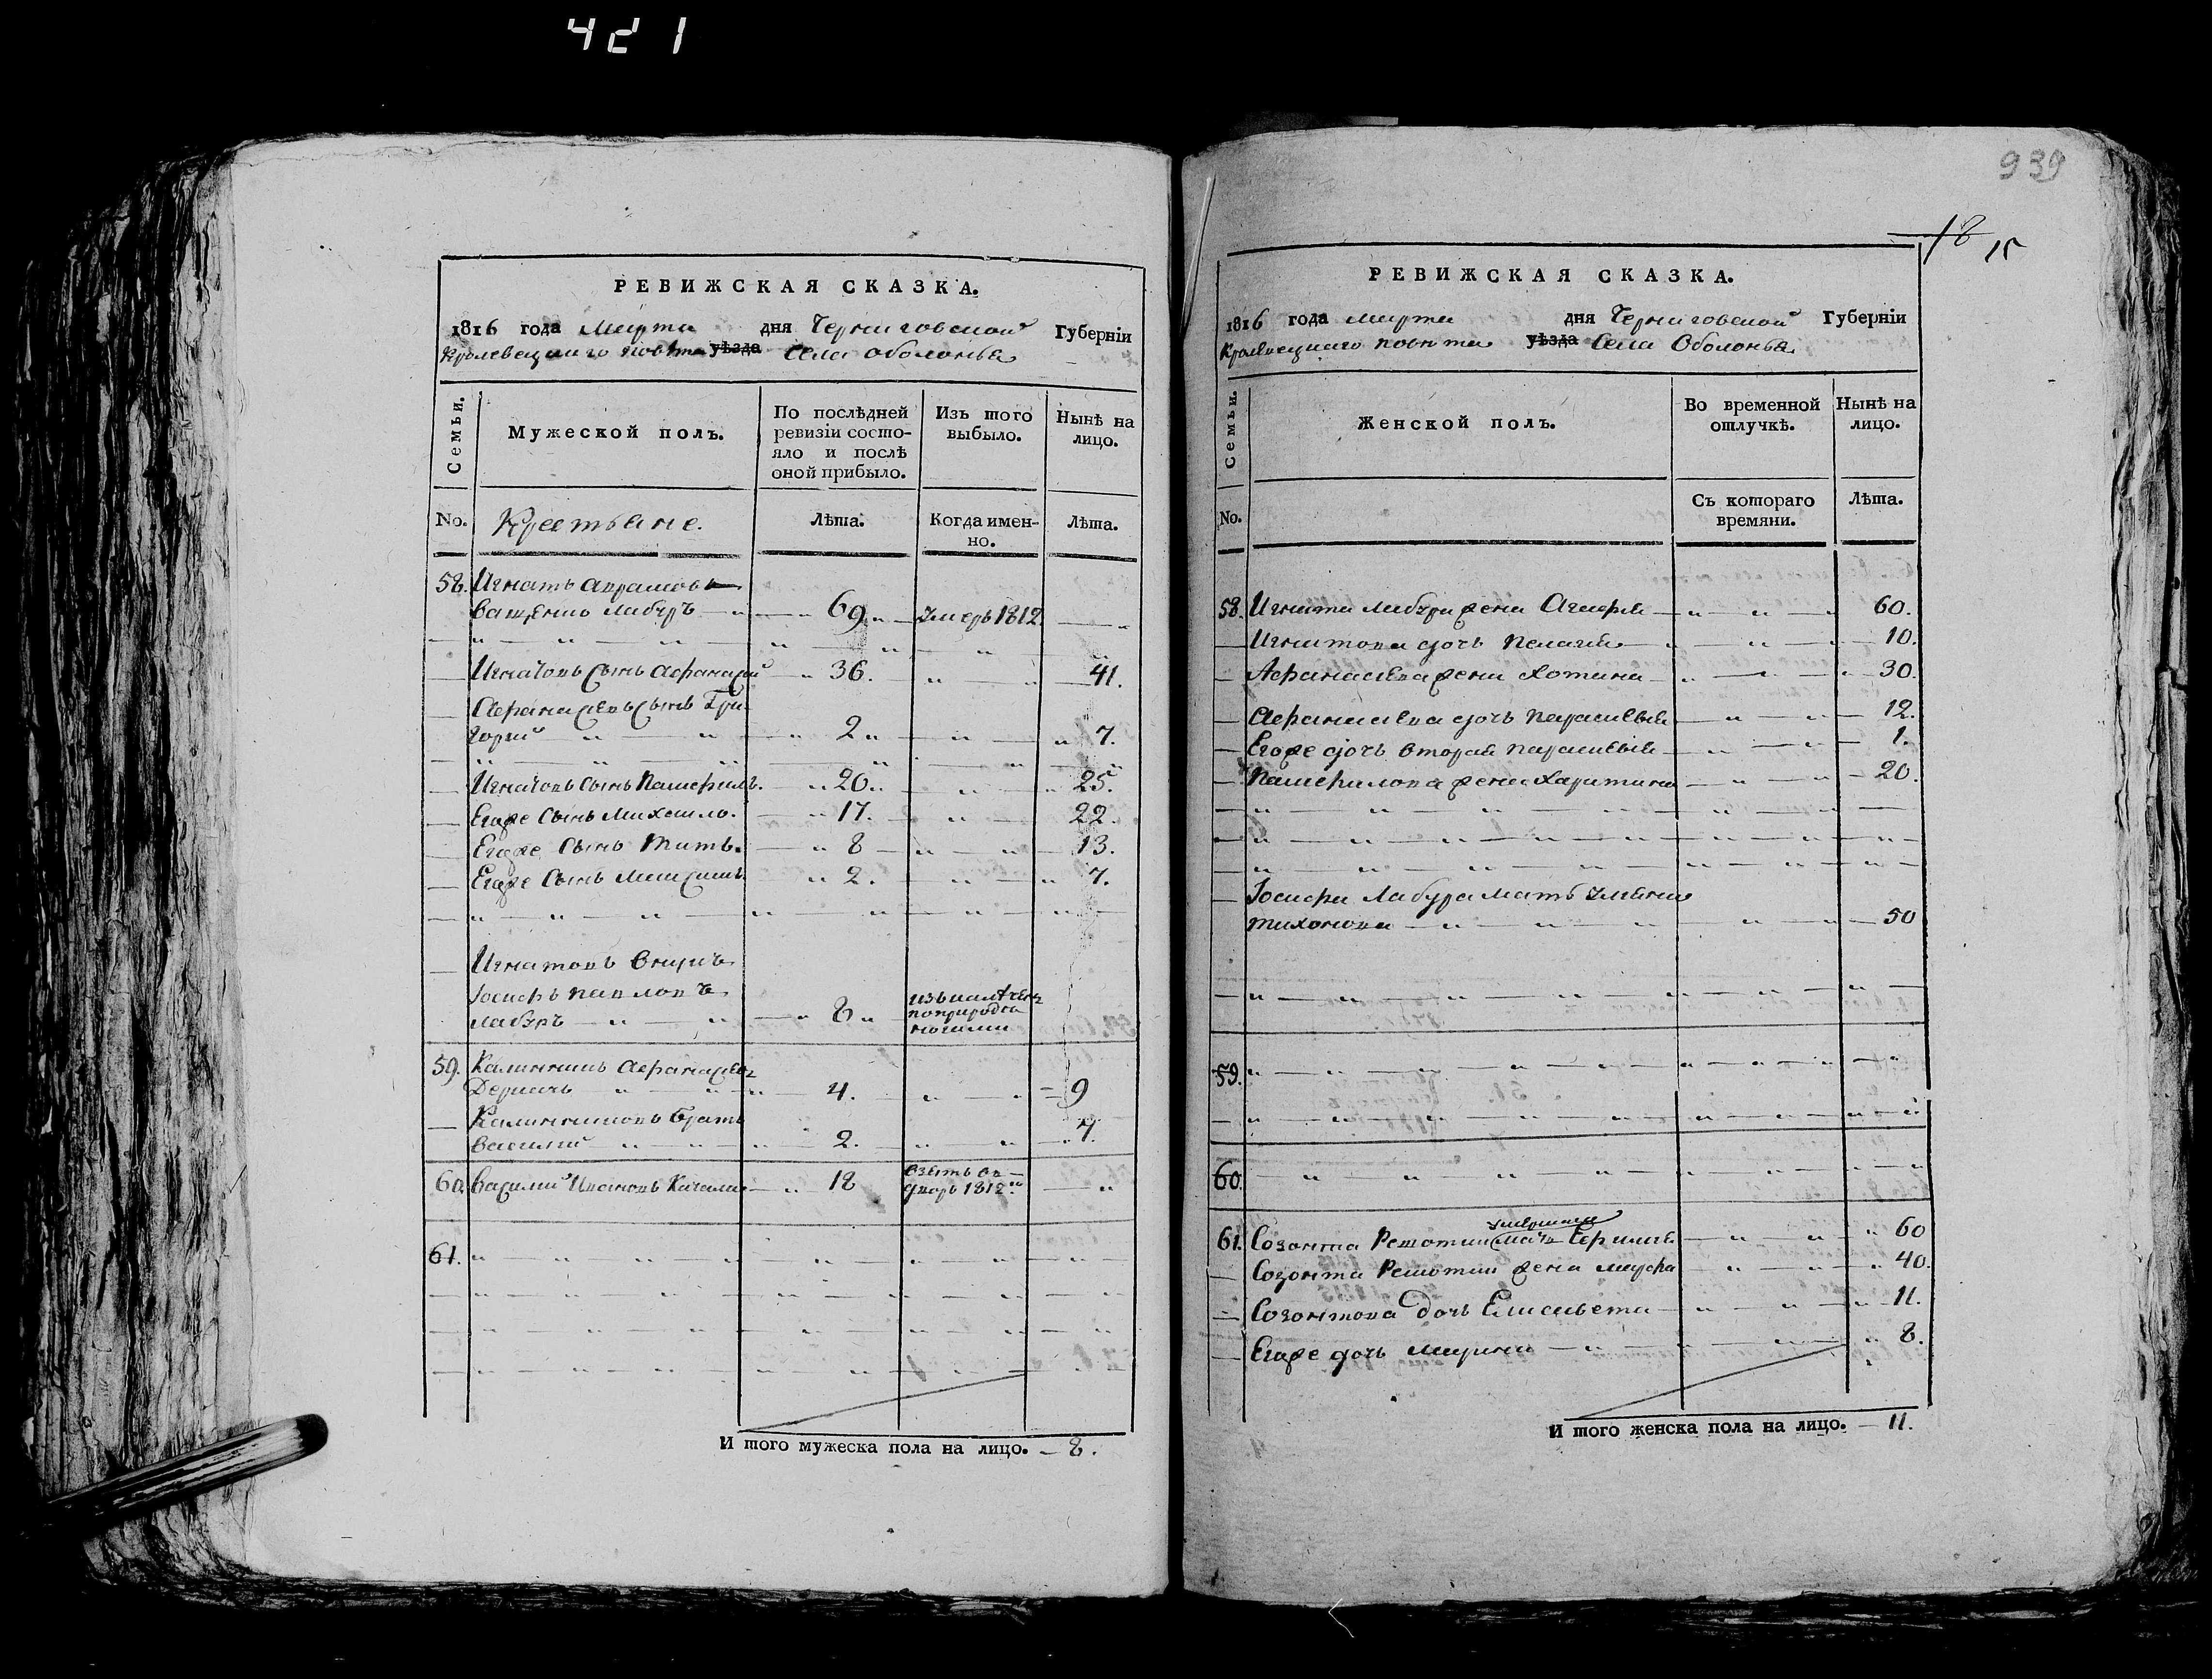 421
939
18 15
РЕВИЖСКАЯ СКАЗКА.
1816 года Марта дня Черниговской Губерніи
Кролевецкаго повѣта уѣзда Села Оболонья
Семьи.
Мужеской полъ.
По послѣдней ревизіи состояло и послѣ оной прибыло.
Изъ того выбыло.
Нынѣ на лицо.
No. Крестьяне. Лѣта. Когда именно. Лѣта.
58. Игнатъ Авраmовъ
Лабуръ 69 умеръ 1812
Игнатовъ сынъ Афанасій 36. 41.
Афанасьевъ сынъ Гри-
горій 2 7.
Игнатовъ сынъ Памфилъ. 20 25.
Егоже сынъ Михайло. 17. 22.
Егоже сынъ Титъ. 8 13.
Егоже сынъ 2. 7.
Игнатовъ внукъ
Іосифъ Павловъ
Лабуръ 8
59. Калинникъ Афанасьевъ
4. 9
Калинниковъ братъ
Василій 2. 7.
60. Василій Ивановъ 18 взятъ во
дворъ 1812
61.
И того мужеска пола на лицо. 8.
РЕВИЖСКАЯ СКАЗКА.
1816 года марта дня Черниговской Губерніи
Кролевецкаго повѣта уѣзда Села Оболонья
Семьи.
Женской полъ.
Во временной отлучкѣ.
Нынѣ на лицо.
No. Съ котораго времяни. Лѣта.
58. Игната Лабура жена Агафія 60.
Игнатова дочь Пелагея 10.
Афанасьева жена Хотина 30.
Афанасьева дочь Параскевія 12.
Егоже дочь вторая Параскевія 1.
Памфилова жена Харитина 20.
Іосифа Лабура мать
Тихонова 50
59.
60.
61. Созонта мать 60
Созонта жена Марфа 40.
Созонтова дочь Елисавета 11.
Егоже дочь Марина 8.
И того женска пола на лицо. 11.